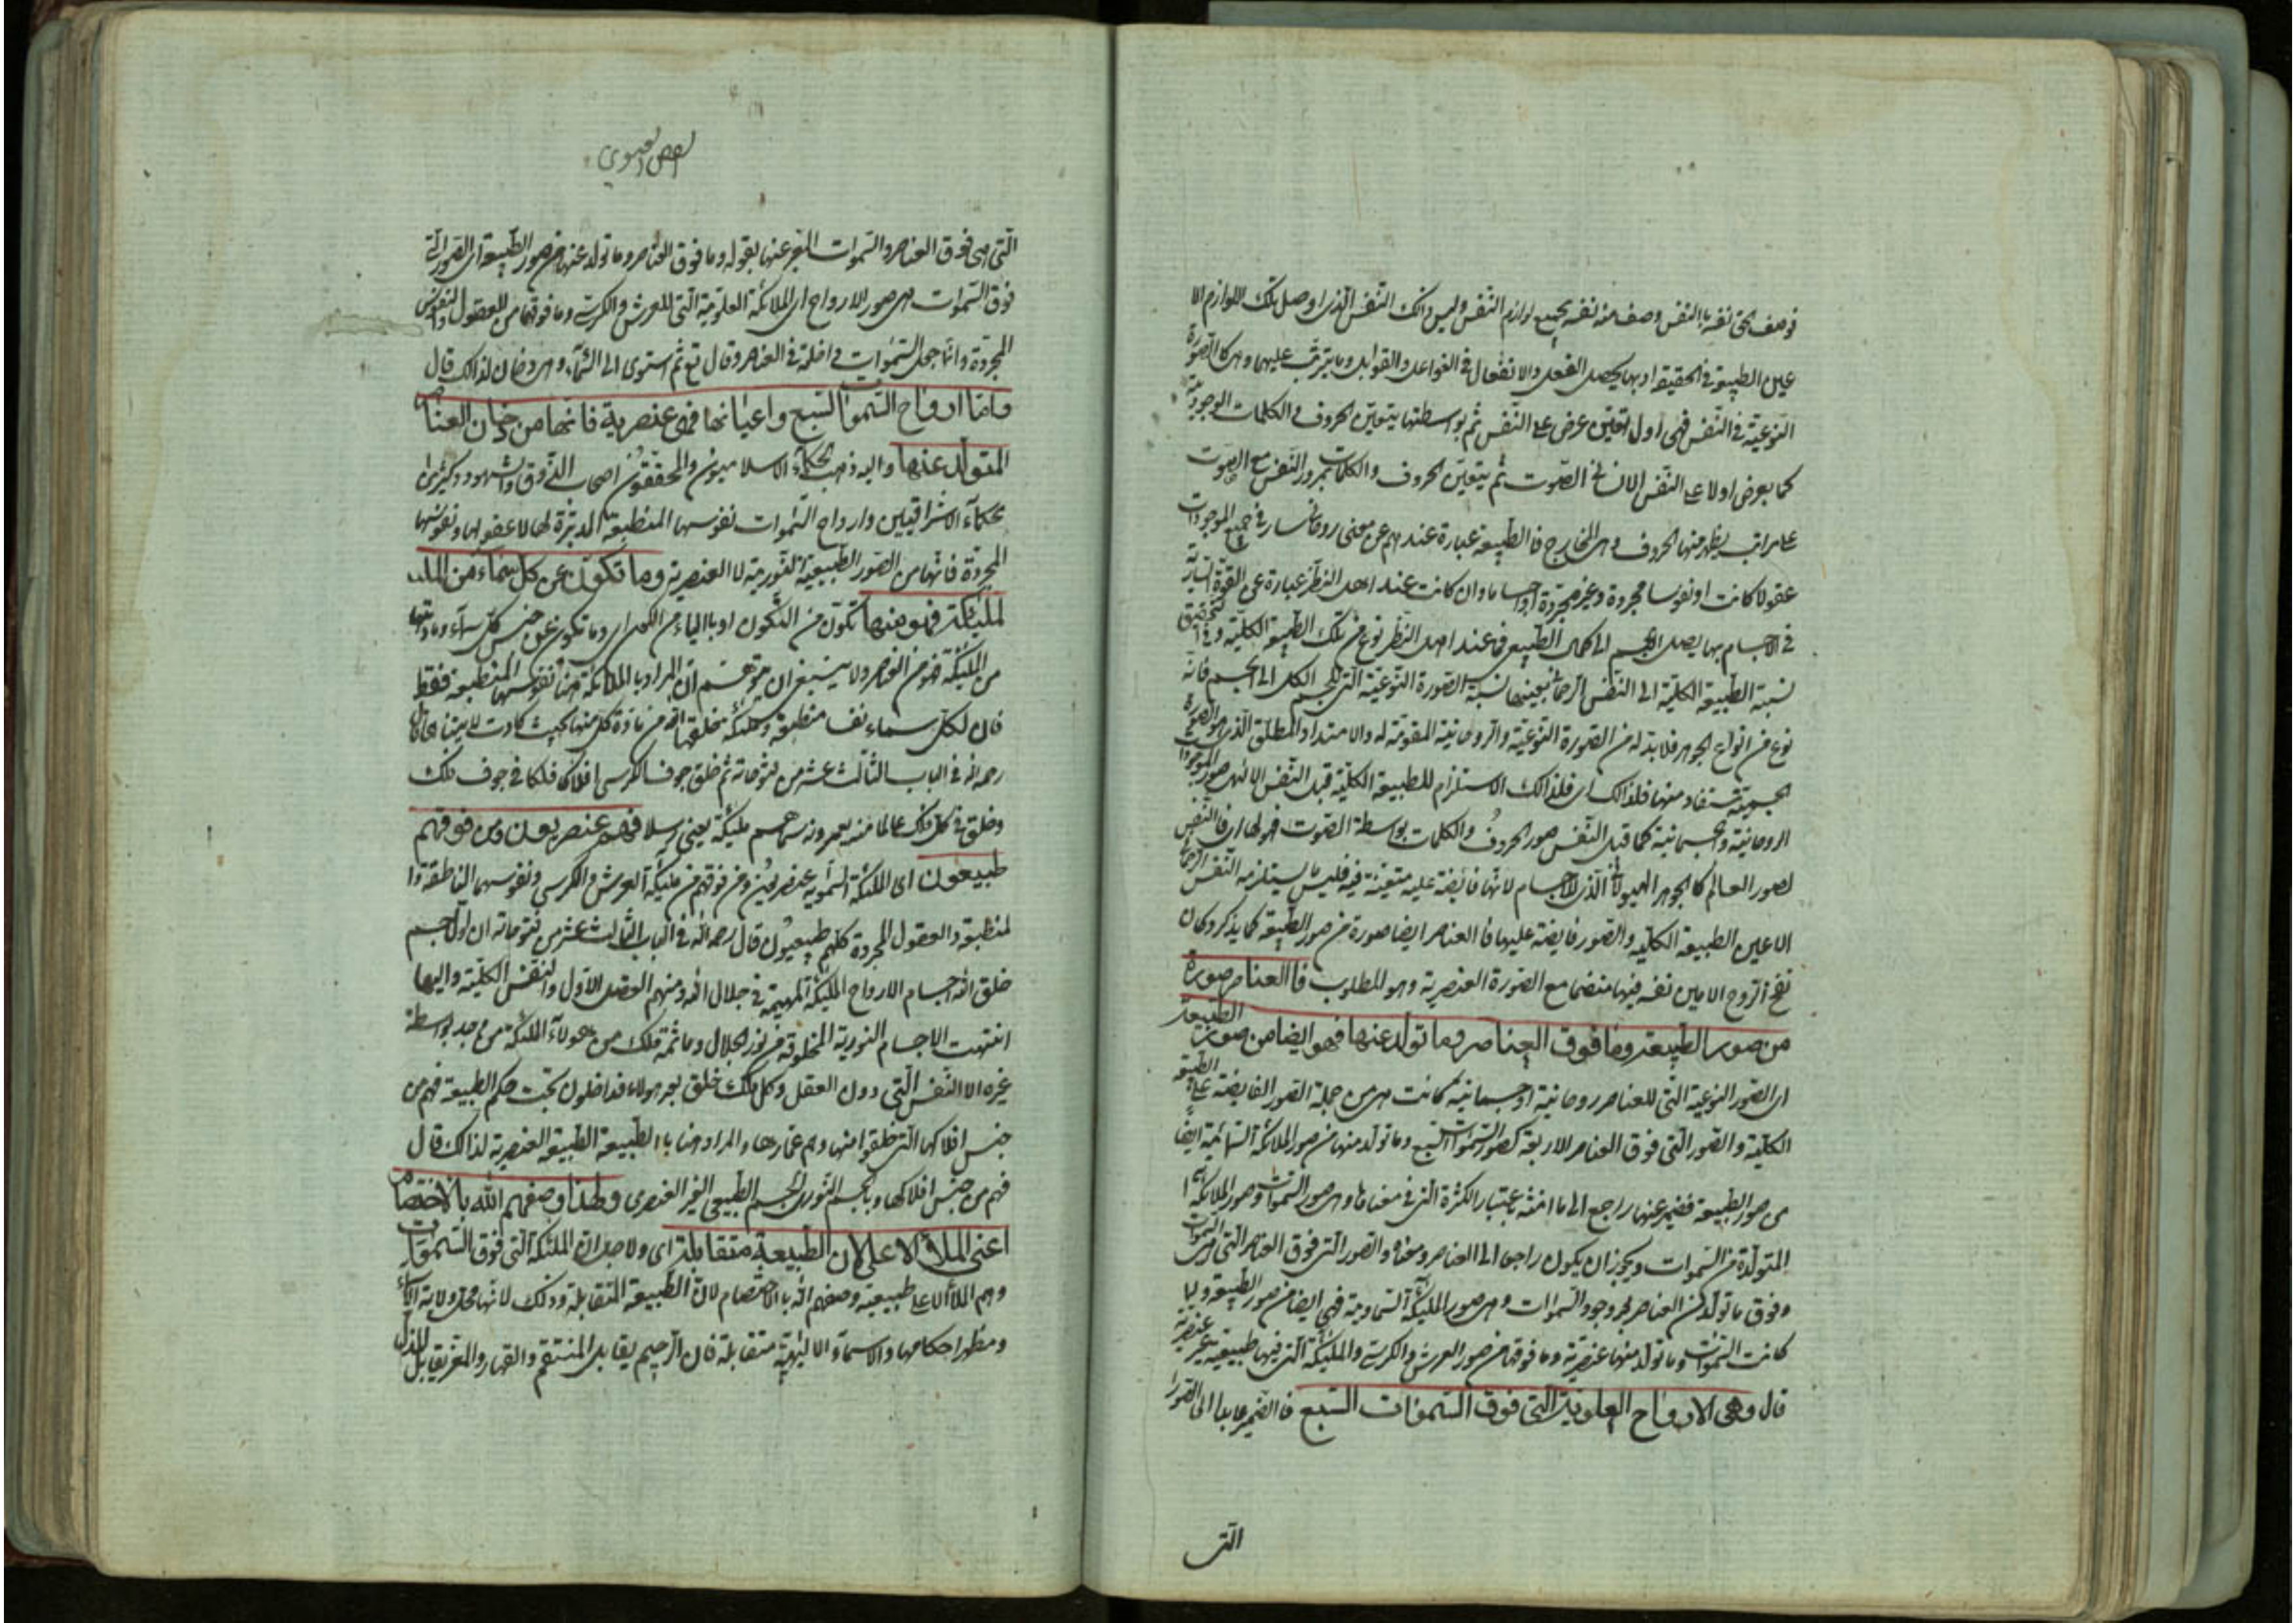 فوصف الحق نفسه بالنفس وصف منه نفسه بجميع لوازم النفس وليس ذلك النفس الذي اوصل بتلك اللوازم الا
عين الطبيعة في الحقيقة اذ بها يحصل الفعل والانفعال في الفواعل والقوابل وما يترتب عليهما وهي كالصورة
النوعية في النفس فهي اول تعين عرض على النفس ثم بواسطتها يتعين الحروف في الكلمات الوجودية
كما يعرض اولا على النفس الانساني الصوت ثم يتعين الحروف والكلمات بمرور النفس مع الصوت
على مراتب يظهر منها الحروف وهي المخارج فالطبيعة عبارة عندهم عن معنى روحاني سار في جميع الموجودات
عقولا كانت او نفوسا مجردة وغير مجردة او اجساما وان كانت عند اهل النظر عبارة عن القوة السارية
في الاجسام بها يصل الجسم الى كماله الطبيعي فما عند اهل النظر نوع من تلك الطبيعة الكلية وفي التحقيق
نسبة الطبيعة الكلية الى النفس الرحماني بعينها نسبة الصورة النوعية التي للجسم الكل الى الجسم فانه
نوع من انواع الجوهر فلا بد له من الصورة النوعية والروحانية المقومة له والامتداد المطلق الذي هو الصورة
الجسمية مستفاد منها فلذلك اي فلذلك الاستلزام للطبيعة الكلية قبل النفس الالهي صور الموجودات
الروحانية والجسمانية كما قبل النفس صور الحروف والكلمات بواسطة الصوت فهو لها اي فالنفس
لصور العالم كالجوهر الهيولاني الذي للاجسام لانها فايضة عليه متعينة فيه فليس ما يستلزمه النفس الرحماني
الا عين الطبيعة الكلية والصور فايضة عليها فالعناصر ايضا صورة من صور الطبيعة كما يذكر وكان
نفخ الروح الامين نفسه فيها منضما مع الصورة العنصرية وهو المطلوب فالعناصر صورة
من صور الطبيعة وما فوق العناصر وما تولد عنها فهو ايضا من صور الطبيعة
اي الصور النوعية التي للعناصر روحانية او جسمانية كانت هي من جملة الصور الفايضة على الطبيعة
الكلية والصور التي فوق العناصر الاربعة كصور السموات السبع وما تولد منها من صور الملائكة السمائية ايضا
من صور الطبيعة فضمير عنها راجع الى ما انثه باعتبار الكثرة التي في معناها وهي صور السموات وصور الملائكة
المتولدة من السموات ويجوز ان يكون راجعا الى العناصر ومعناه والصور التي فوق العناصر التي هي السموات
وفوق ما تولد من العناصر وجود السموات وهي صور الملائكة السماوية فهي ايضا من صور الطبيعة ولما
كانت السموات وما تولد منها عنصرية وما فوقها من صور العرش والكرسي والملئكة التي فيها طبيعية غير عنصرية
قال وهي الارواح العلوية التي فوق السموات السبع فالضمير عايد الى الصور
التي
الفص العيسوي
التي هي فوق العناصر والسموات المعبر عنها بقوله وما فوق العناصر وما تولد عنها من صور الطبيعة اي الصور التي
فوق السموات هي صور الارواح اي الملائكة العلوية التي للعرش والكرسي وما فوقهما من العقول والنفوس
المجردة وانما جعل السموات داخلة في العناصر وقال تع ثم استوى الى السماء وهي دخان لذلك قال
واما ارواح السموات السبع واعيانها فهي عنصرية فانها من دخان العناصر
المتولد عنها واليه ذهب الحكماء الاسلاميون والمحققون اصحاب الذوق والشهود وكثير من
حكماء الاشراقيين وارواح السموات نفوسها المنطبعة المدبرة لها لا عقولها ونفوسها
المجردة فانها من الصور الطبيعية النورية لا العنصرية وما تكون عن كل سماء من الملئـ
لملئكة فهو منها تكون من التكون او بالياء من الكون اي وما تكون عن جنس كل سماء ومادتها
من الملئكة فهو من العناصر ولا ينبغي ان يتوهم ان المراد بالملائكة هنا نفوسها المنطبعة فقط
فان لكل سماء نفسا منطبعة وملئكة يخلقها الله من مادة كل منها بحيث كادت لا يتناهى قال
رحمه الله في الباب الثالث عشر من فتوحاته ثم خلق جوف الكرسي افلاكا فلكا في جوف فلك
وخلق في كل فلك عالما منه يعمرونه سماهم ملئكة يعني رسلا فهم عنصريون ومن فوقهم
طبيعيون اي الملئكة السموية عنصريون ومن فوقهم من ملئكة العرش والكرسي ونفوسهما الناطقة وا
لمنطبعة والعقول المجردة كلهم طبيعيون قال رحمه الله في الباب الثالث عشر من فتوحاته ان اول جسم
خلق الله اجسام الارواح الملئكة المهيمة في جلال الله ومنهم العقل الاول والنفس الكلية واليها
انتهت الاجسام النورية المخلوقة من نور الجلال وما ثمه ملك من هؤلاء الملئكة من وجد بواسطة
غيره الا النفس التي دون العقل وكل ملك خلق بعد هولاء فداخلون تحت حكم الطبيعة فهم من
جنس افلاكها التي خلقوا منها وهم عمارها والمراد هنا بالطبيعة الطبيعة العنصرية لذلك قال
فهم من جنس افلاكها وبالجسم النوري الجسم الطبيعي الغير العنصري ولهذا وصفهم الله بالاختصام
اعني الملأ الاعلى لان الطبيعة متقابلة اي ولاجل ان الملئكة التي فوق السموات
وهم الملأ الاعلى طبيعية وصفهم الله بالاختصام لان الطبيعة المتقابلة وذلك لانها محل ولاية الاسماء
ومظهر احكامها والاسماء الالهية متقابلة فان الرحيم يقابل المنتقم والقهار والمعز يقابل المذل